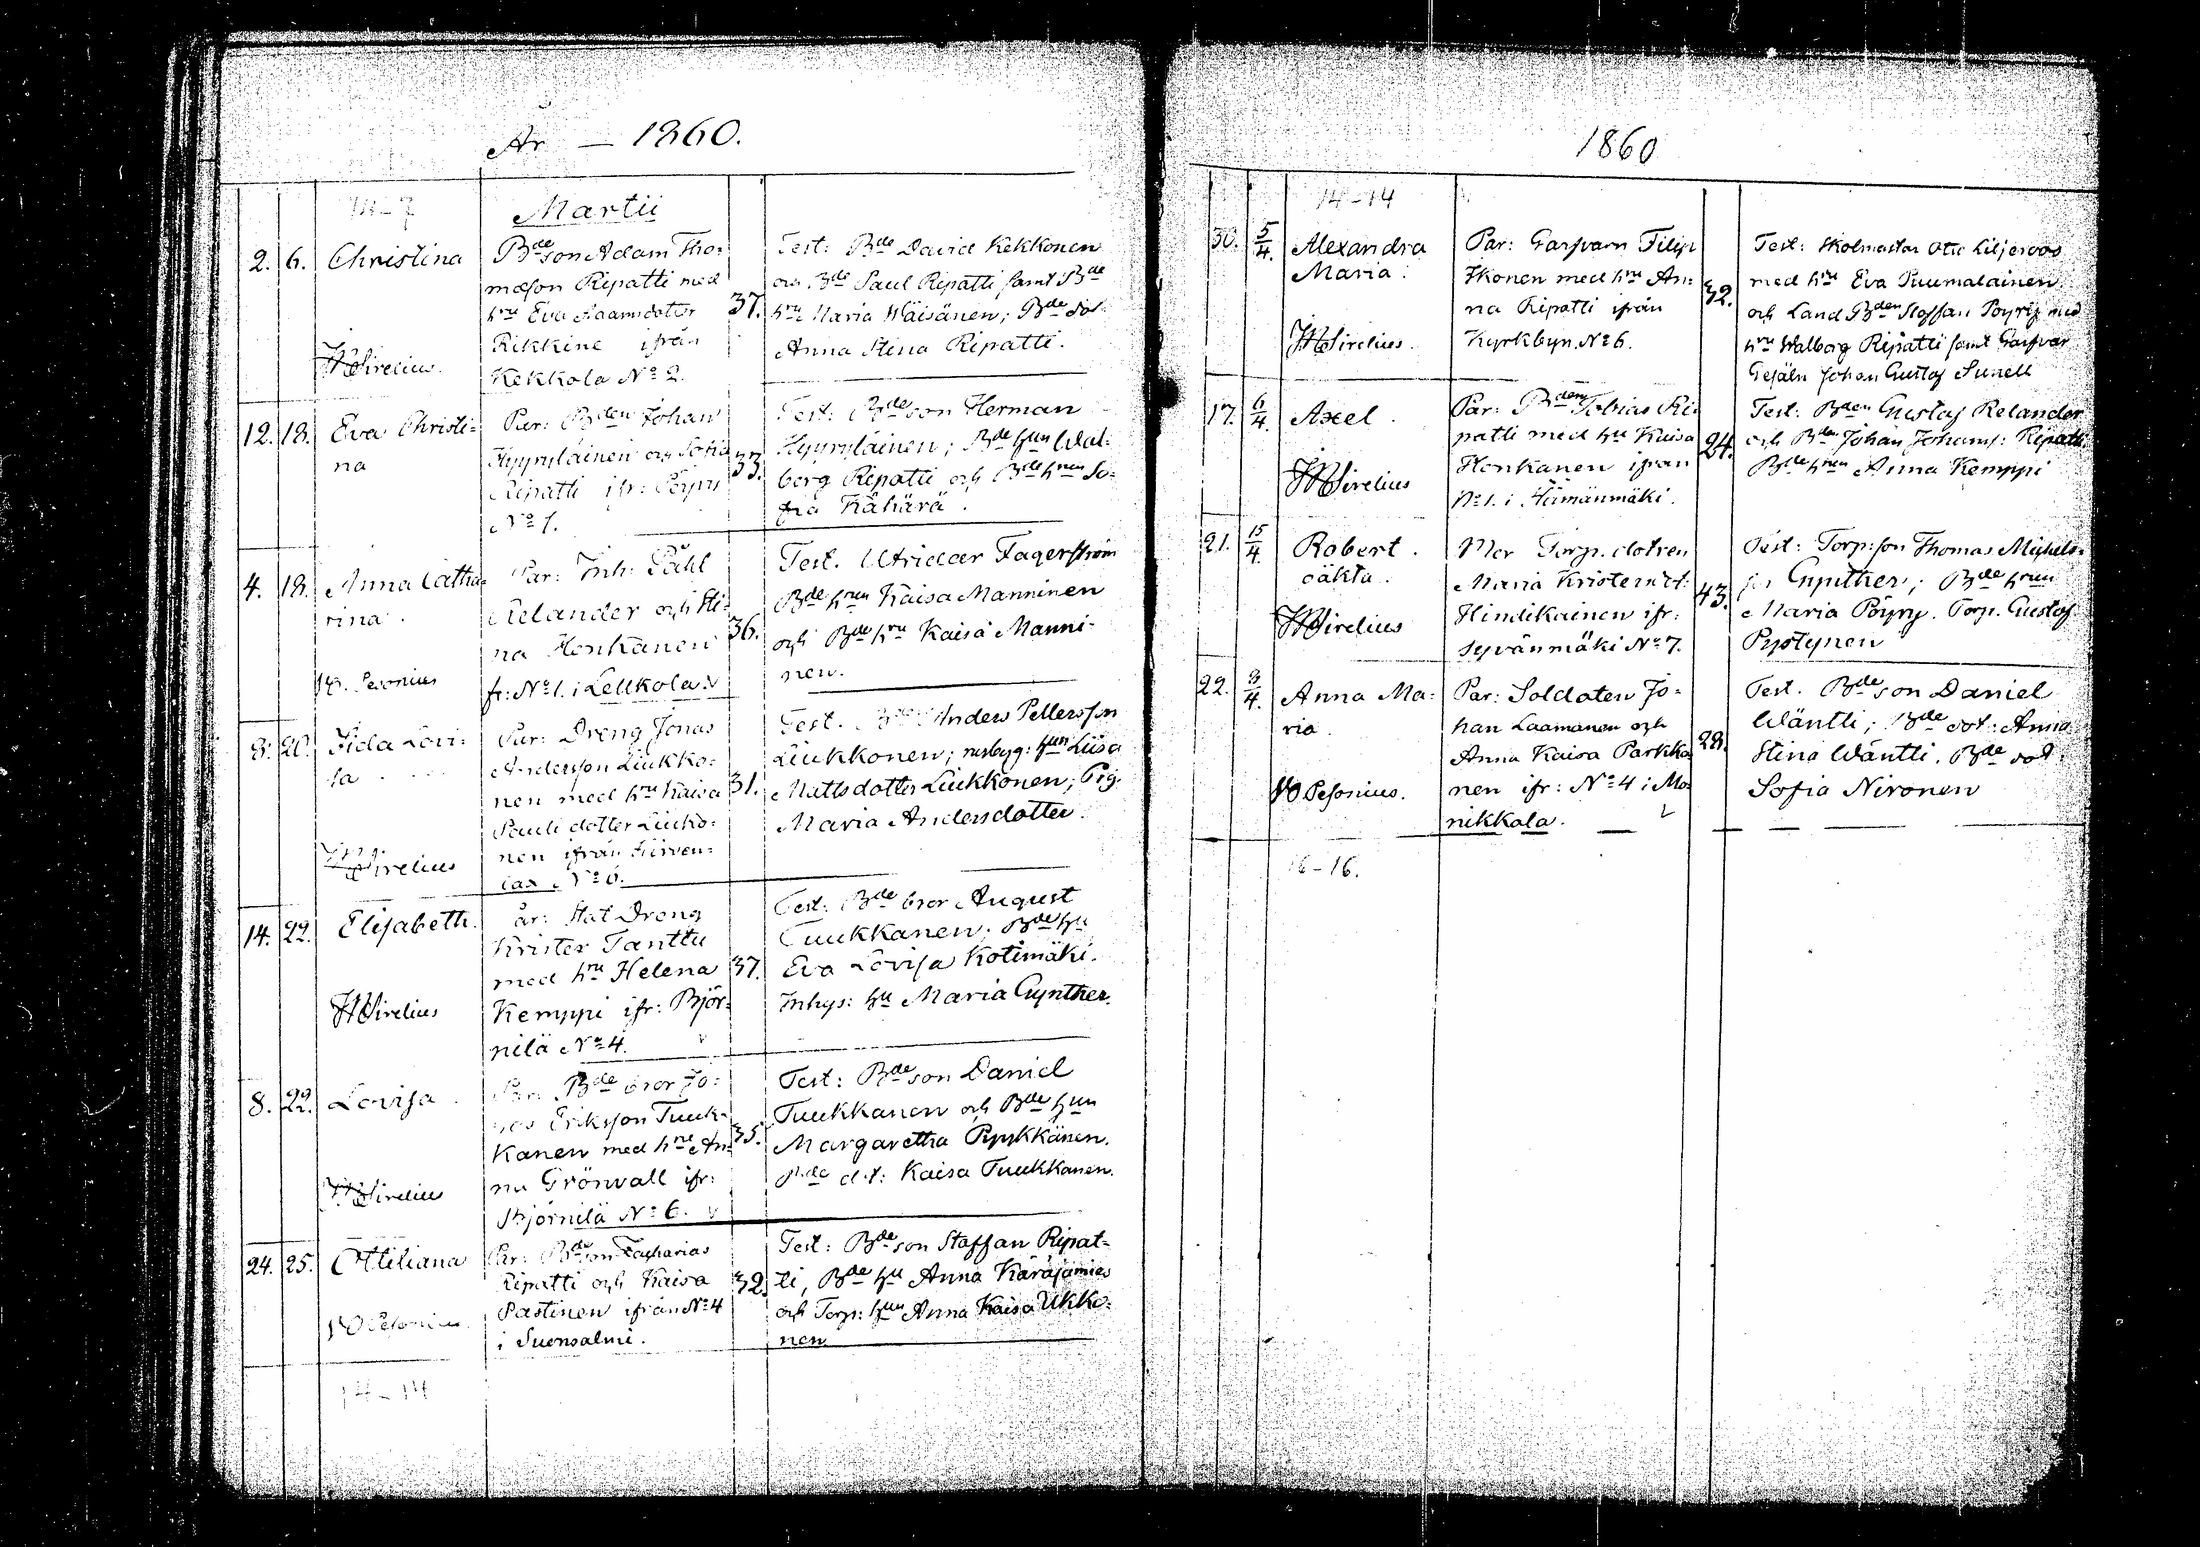 År — 1860.
Martii
2. 6. Christina
Bde son Adam Tho:
masson Ripatti med
hru Eva Adamsdotter
Rikkine ifrån
Kekkola No 2.
37.
Test: Bde David Kekkonen
och Bde Paul Ripatti samt Bde
hru Maria Wäisänen; Bde dot
Anna Stina Ripatti.
Sirelius.
12. 18. Eva Christi=
na
Par: Bden Johan
Hyyryläinen och Sofia
Ripatti ifr: Pöyry
No 1.
33.
Test: Bde son Herman
Hyyryläinen; Bde hun Wal-
borg Ripatti och Bde hrun So-
fia Kähärä.
4. 18. Anna Catha=
rina.
Par: Inh: Påhl
Relander och Sti=
na Henkanen
fr: No 1. i Lellkola.
36.
Test. Utridar Fagerström
Bde hrun Kaisa Manninen
och Bde hru Kaisa Manni-
nen.
Pesonius
8. 20. Fida Lovi=
sa
Par: Dreng Jonas
Andersson Liukko=
nen med hru Kaisa
Pauli dotter Liuko=
nen ifrån
No 6.
31.
Test. Anders Pettersson
Liukkonen; nusbyg: hun Liisa
Mattsdotter Liukkonen; Pig.
Maria Andersdotter.
Sirelius
14. 22. Elisabeth.
Par: Stat Dreng
Krister Tanttu
med hru Helena
Kemppi ifr: Björ=
nilä No 4.
37.
Test: Bde bror August
Tuukkanen; Bde hu
Eva Lovisa Kotimäki.
Inhys: hu Maria Gynther.
Sirelius
8. 22. Lovisa
Par: Bde bror Jo=
nas Eriksson Tuuk-
kanen med hru An=
na Grönvall ifr:
Björnilä No 6.
35.
Test: Bde son Daniel
Tuukkanen och Bde hun
Margaretha Pyykkänen.
Bde dot: Kaisa Tuukkanen.
Sirelius
24. 25. Ottiliana
Par: Bde son Zacharias
Ripatti och Kaisa
Pastinen ifrån No 4
i Suensalmi.
32.
Test: Bde son Staffan Ripat-
ti, Bde hu Anna Käräjämies
och Torp: hun Anna Kaisa Ukko=
nen.
Pesonius.
14-14
1860
14-14
30. 5/4. Alexandra
Maria.
Par: Garfvarn Filip
Ikonen med hru An=
na Ripatti ifrån
Kyrkbyn No 6.
32.
Test: Skolmastar Otto Liljeroos
med hru Eva Puumalainen
och Land Bden Staffan Pöyry med
hru Walborg Ripatti samt Garfvar
Gesäln Johan Gustaf Sunell
Sirelius.
17. 6/4. Axel.
Par: Bden Tobias Ri=
patti med hu Kaisa
Henkanen ifrån
No 1. i Hämänmäki.
24.
Test: Bden Gustaf Relander
och Bden Johan Johanss: Ripatti
Bde hrun Anna Kemppi
Sirelius
21. 15/4. Robert.
oäkta.
Mor Torp. dotren
Maria Kristersdt:
Hindikainen ifr:
Syvänmäki No 7.
43.
Test: Torp: son Thomas Michels-
son Gynther; Bde hrun
Maria Pöyry. Torp. Gustaf
Pystynen
Sirelius
22. 3/4. Anna Ma=
ria.
Par: Soldaten Jo=
han Laamanen och
Anna Kaisa Parkko
nen ifr: No 4 i Mo=
nikkala.
28.
Test. Bde son Daniel
Wäntti; Bde dot: Anna
Stina Wäntti. Bde dot.
Sofia Nironen
Pesonius.
16-16.